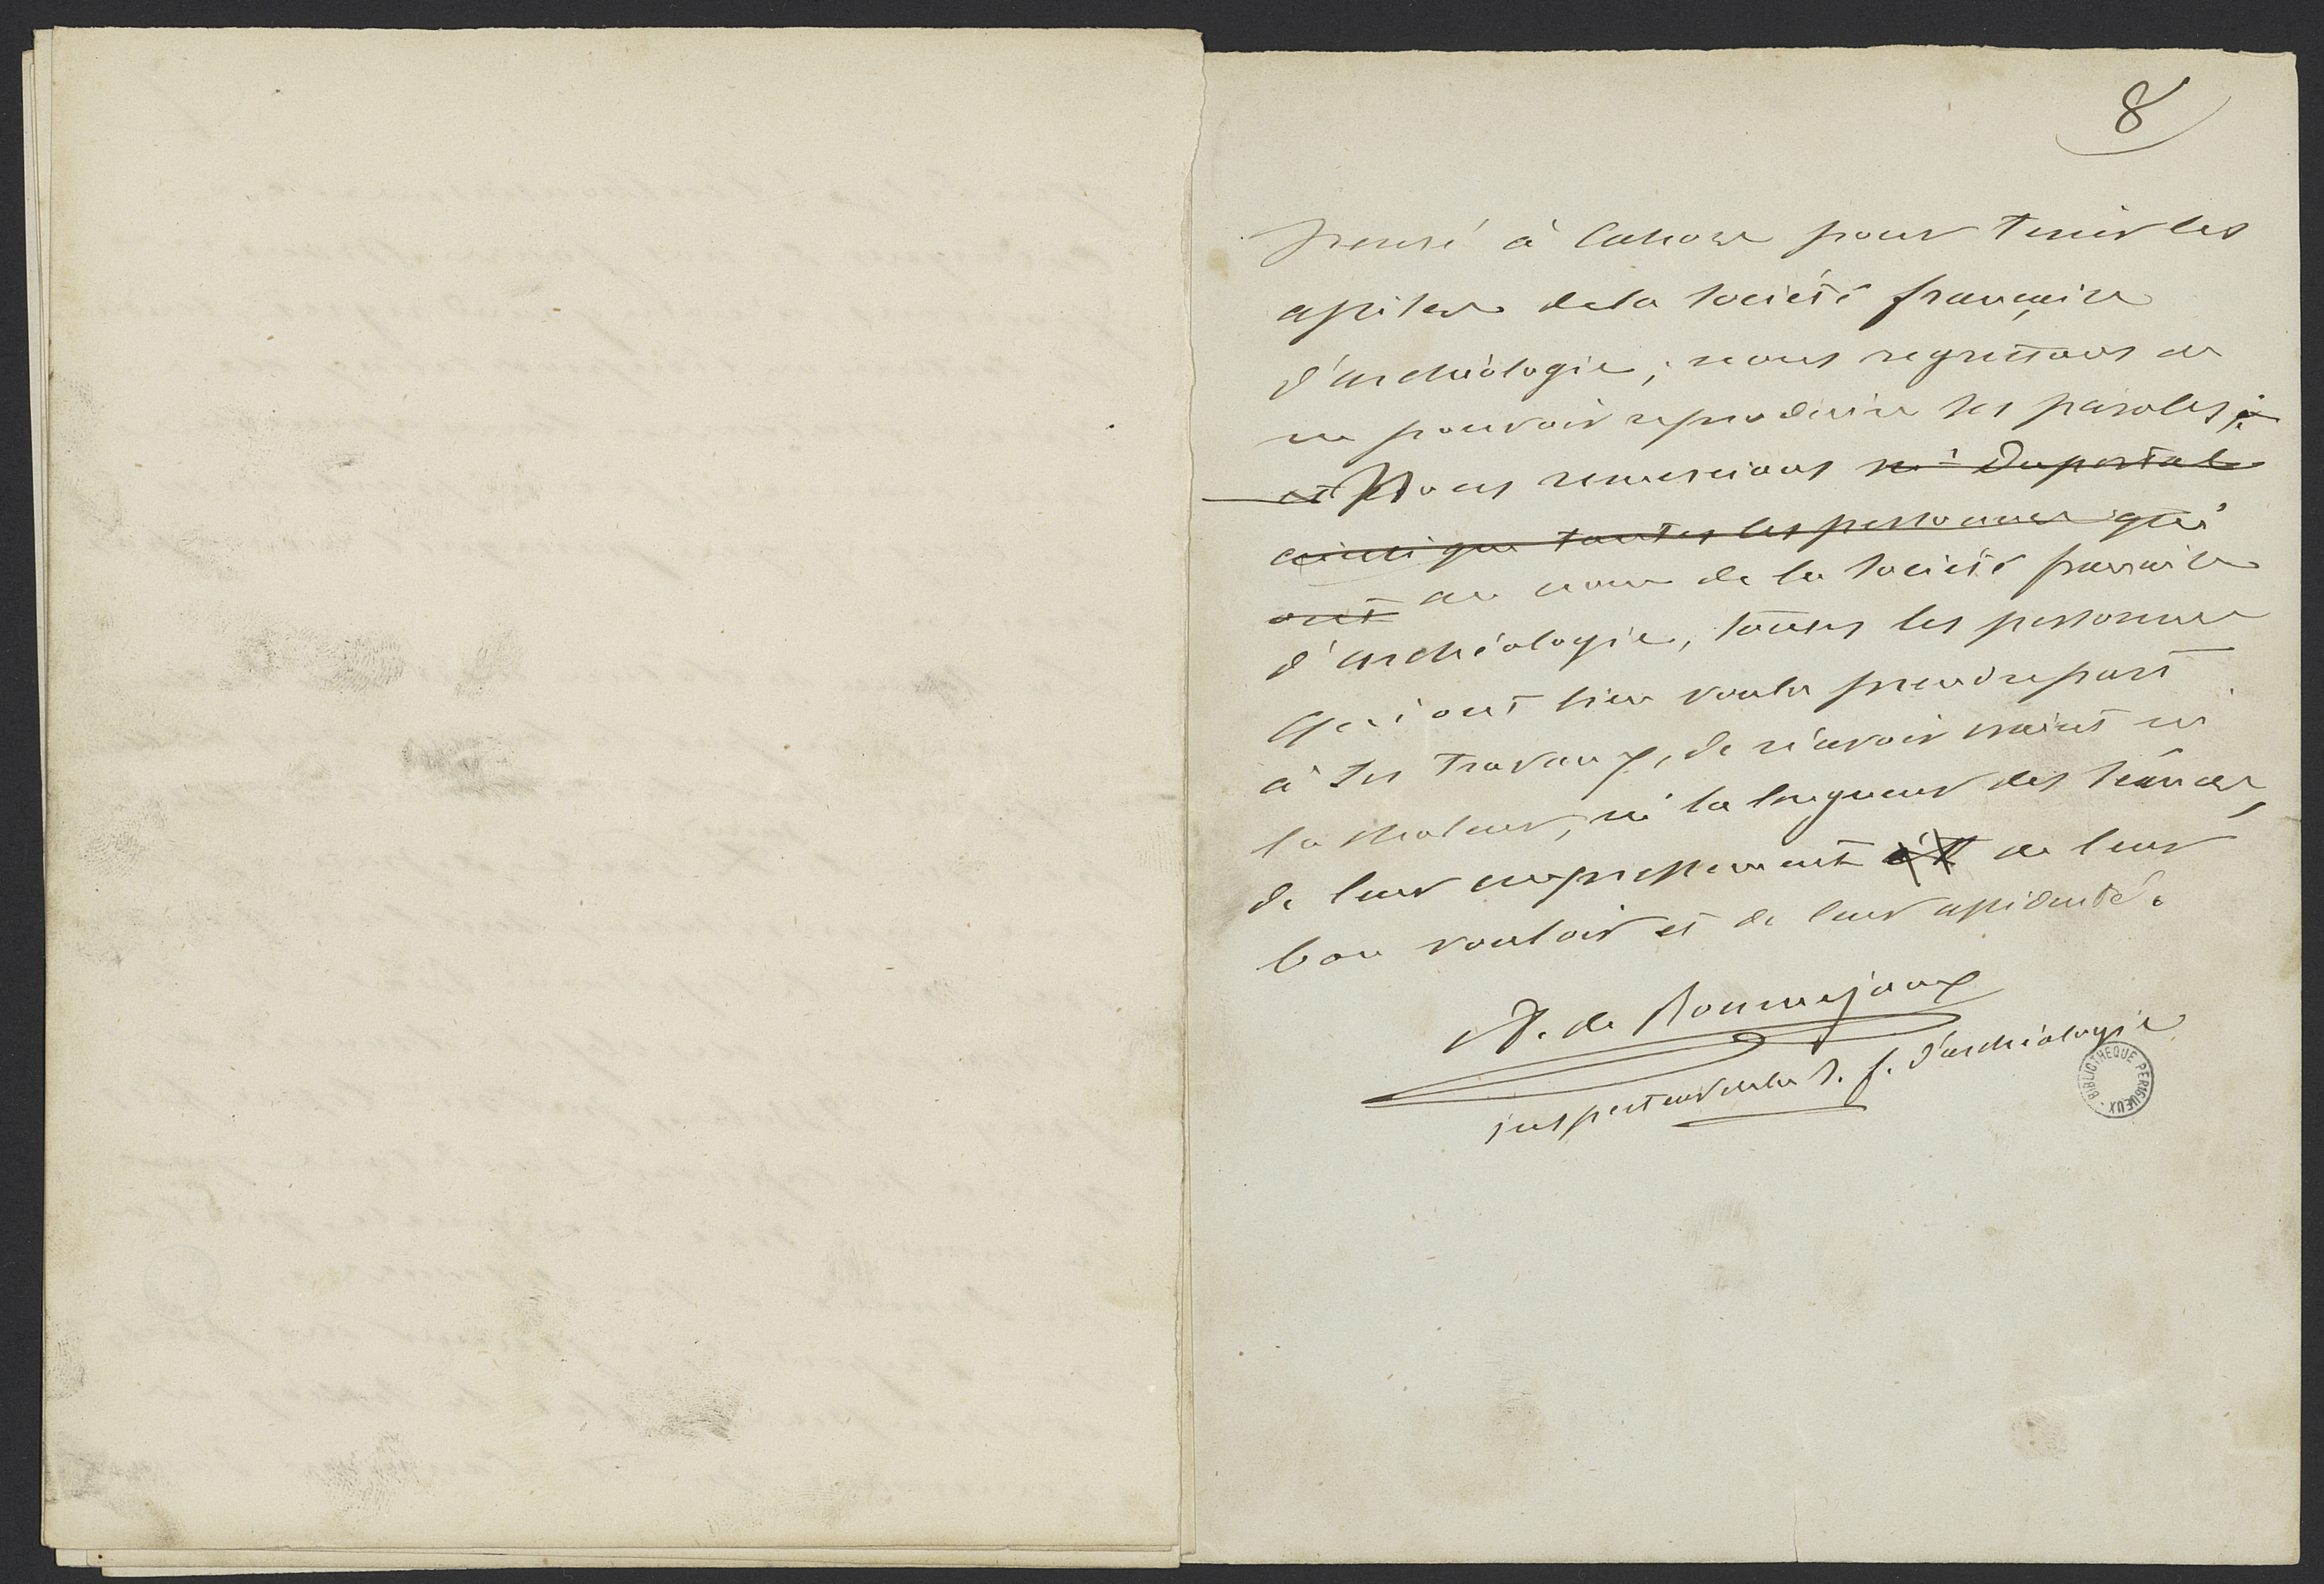 8
pensé à Cahors pour tenir les
assises de la Société française
d'archéologie; nous regrettons de
ne pouvoir reproduire ses paroles;
et Nous remercions mr Duportal
ainsi que toutes les personnes qui
ont au nom de la Société française
d'archéologie, toutes les personnes
qui ont bien voulu prendre part
à ses travaux, de n'avoir craint ni
la chaleur, ni la longueur des séances,
de leur empressement de leur
bon vouloir et de leur assiduité.
A. de Roumejoux
inspecteur de la S. f. d'archéologie
BIBLIOTHEQUE PERIGUEUX